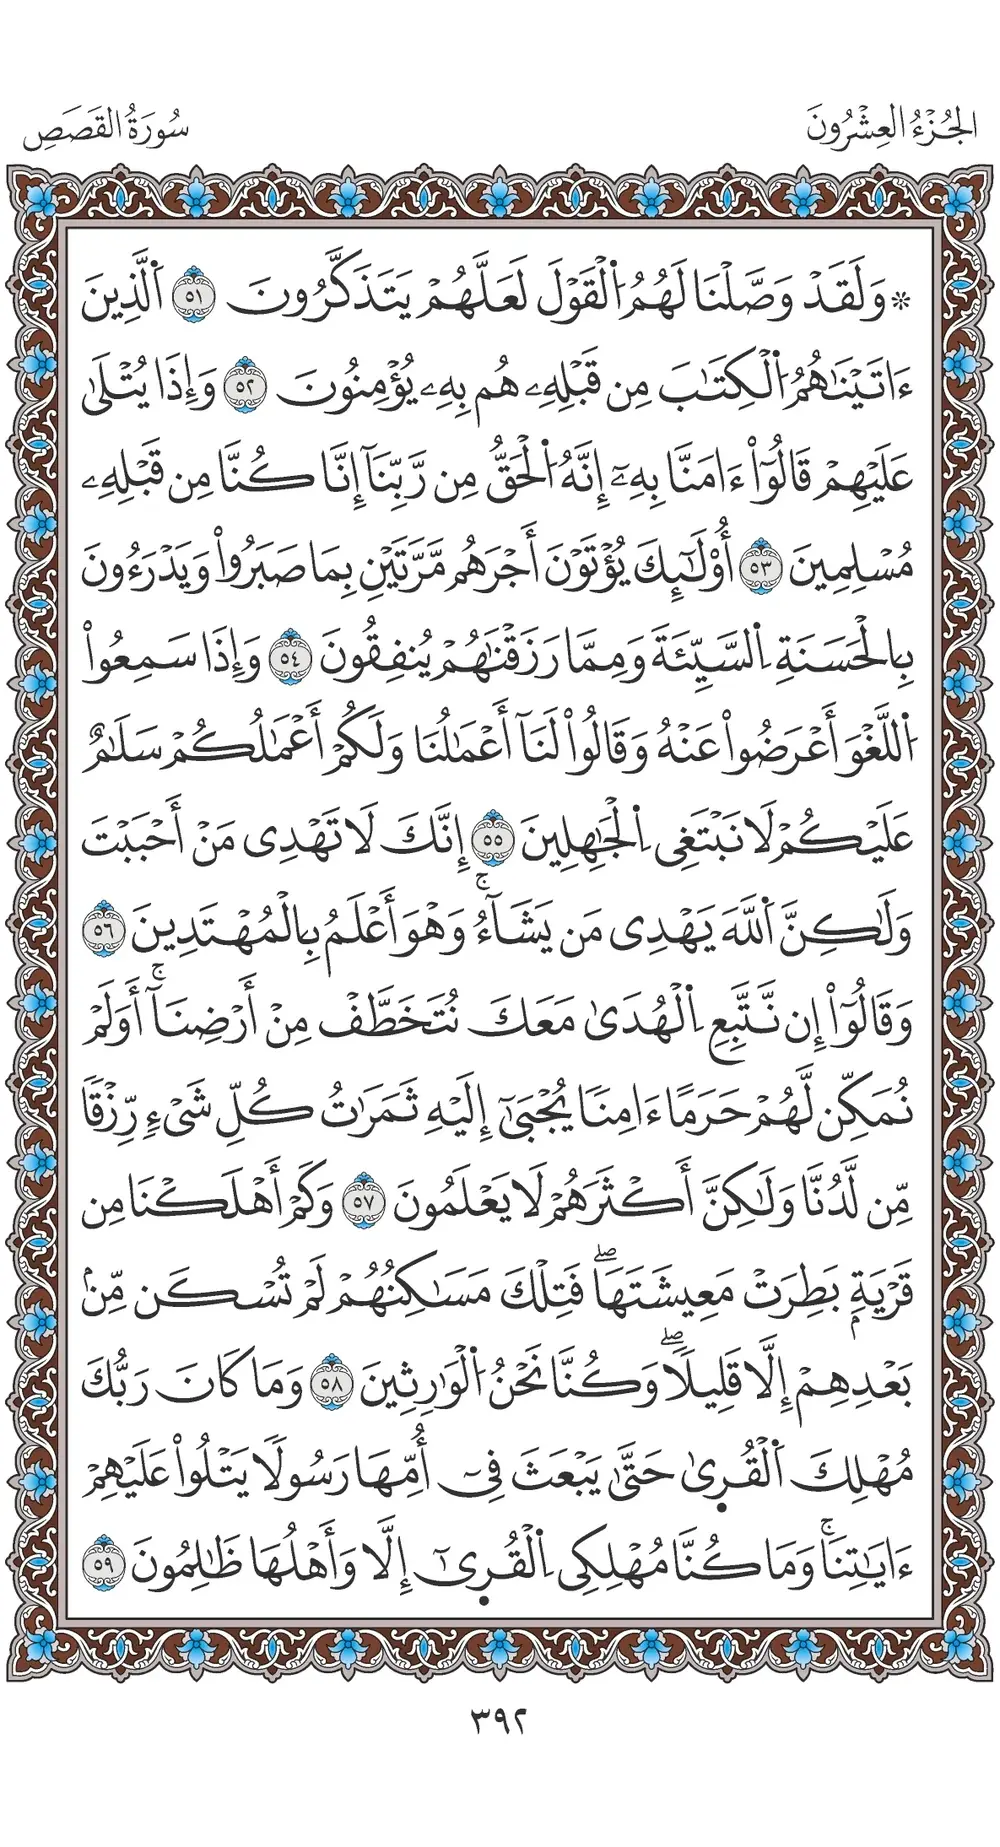 الجُزْءُ العِشْرُونَ
سُورَةُ القَصَصِ
۞ وَلَقَدْ وَصَّلْنَا لَهُمُ اُ۬لْقَوْلَ لَعَلَّهُمْ يَتَذَكَّرُونَ ٥١ اَ۬لَّذِينَ
ءَاتَيْنَٰهُمُ اُ۬لْكِتَٰبَ مِن قَبْلِهِۦ هُم بِهِۦ يُؤْمِنُونَ ٥٢ وَإِذَا يُتْلَىٰ
عَلَيْهِمْ قَالُوٓاْ ءَامَنَّا بِهِۦٓ إِنَّهُ اُ۬لْحَقُّ مِن رَّبِّنَآ إِنَّا كُنَّا مِن قَبْلِهِۦ
مُسْلِمِينَ ٥٣ أُوْلَٰٓئِكَ يُؤْتَوْنَ أَجْرَهُم مَّرَّتَيْنِ بِمَا صَبَرُواْ وَيَدْرَءُونَ
بِالْحَسَنَةِ اِ۬لسَّيِّئَةَ وَمِمَّا رَزَقْنَٰهُمْ يُنفِقُونَ ٥٤ وَإِذَا سَمِعُواْ
اُ۬للَّغْوَ أَعْرَضُواْ عَنْهُ وَقَالُواْ لَنَآ أَعْمَٰلُنَا وَلَكُمْ أَعْمَٰلُكُمْ سَلَٰمٌ
عَلَيْكُمْ لَا نَبْتَغِي اِ۬لْجَٰهِلِينَ ٥٥ إِنَّكَ لَا تَهْدِي مَنْ أَحْبَبْتَ
وَلَٰكِنَّ اَ۬للَّهَ يَهْدِي مَن يَشَآءُۚ وَهْوَ أَعْلَمُ بِالْمُهْتَدِينَ ٥٦
وَقَالُوٓاْ إِن نَّتَّبِعِ اِ۬لْهُدَىٰ مَعَكَ نُتَخَطَّفْ مِنْ أَرْضِنَآۚ أَوَلَمْ
نُمَكِّن لَّهُمْ حَرَمًا ءَامِنًا يُجْبَىٰٓ إِلَيْهِ ثَمَرَٰتُ كُلِّ شَيْءٍ رِّزْقًا
مِّن لَّدُنَّا وَلَٰكِنَّ أَكْثَرَهُمْ لَا يَعْلَمُونَ ٥٧ وَكَمْ أَهْلَكْنَا مِن
قَرْيَةِۭ بَطِرَتْ مَعِيشَتَهَاۖ فَتِلْكَ مَسَٰكِنُهُمْ لَمْ تُسْكَن مِّنۢ
بَعْدِهِمْ إِلَّا قَلِيلًاۖ وَكُنَّا نَحْنُ اُ۬لْوَٰرِثِينَ ٥٨ وَمَا كَانَ رَبُّكَ
مُهْلِكَ اَ۬لْقُر۪ىٰ حَتَّىٰ يَبْعَثَ فِيٓ أُمِّهَا رَسُولًا يَتْلُواْ عَلَيْهِمْ
ءَايَٰتِنَاۚ وَمَا كُنَّا مُهْلِكِي اِ۬لْقُر۪ىٰٓ إِلَّا وَأَهْلُهَا ظَٰلِمُونَ ٥٩
٣٩٢